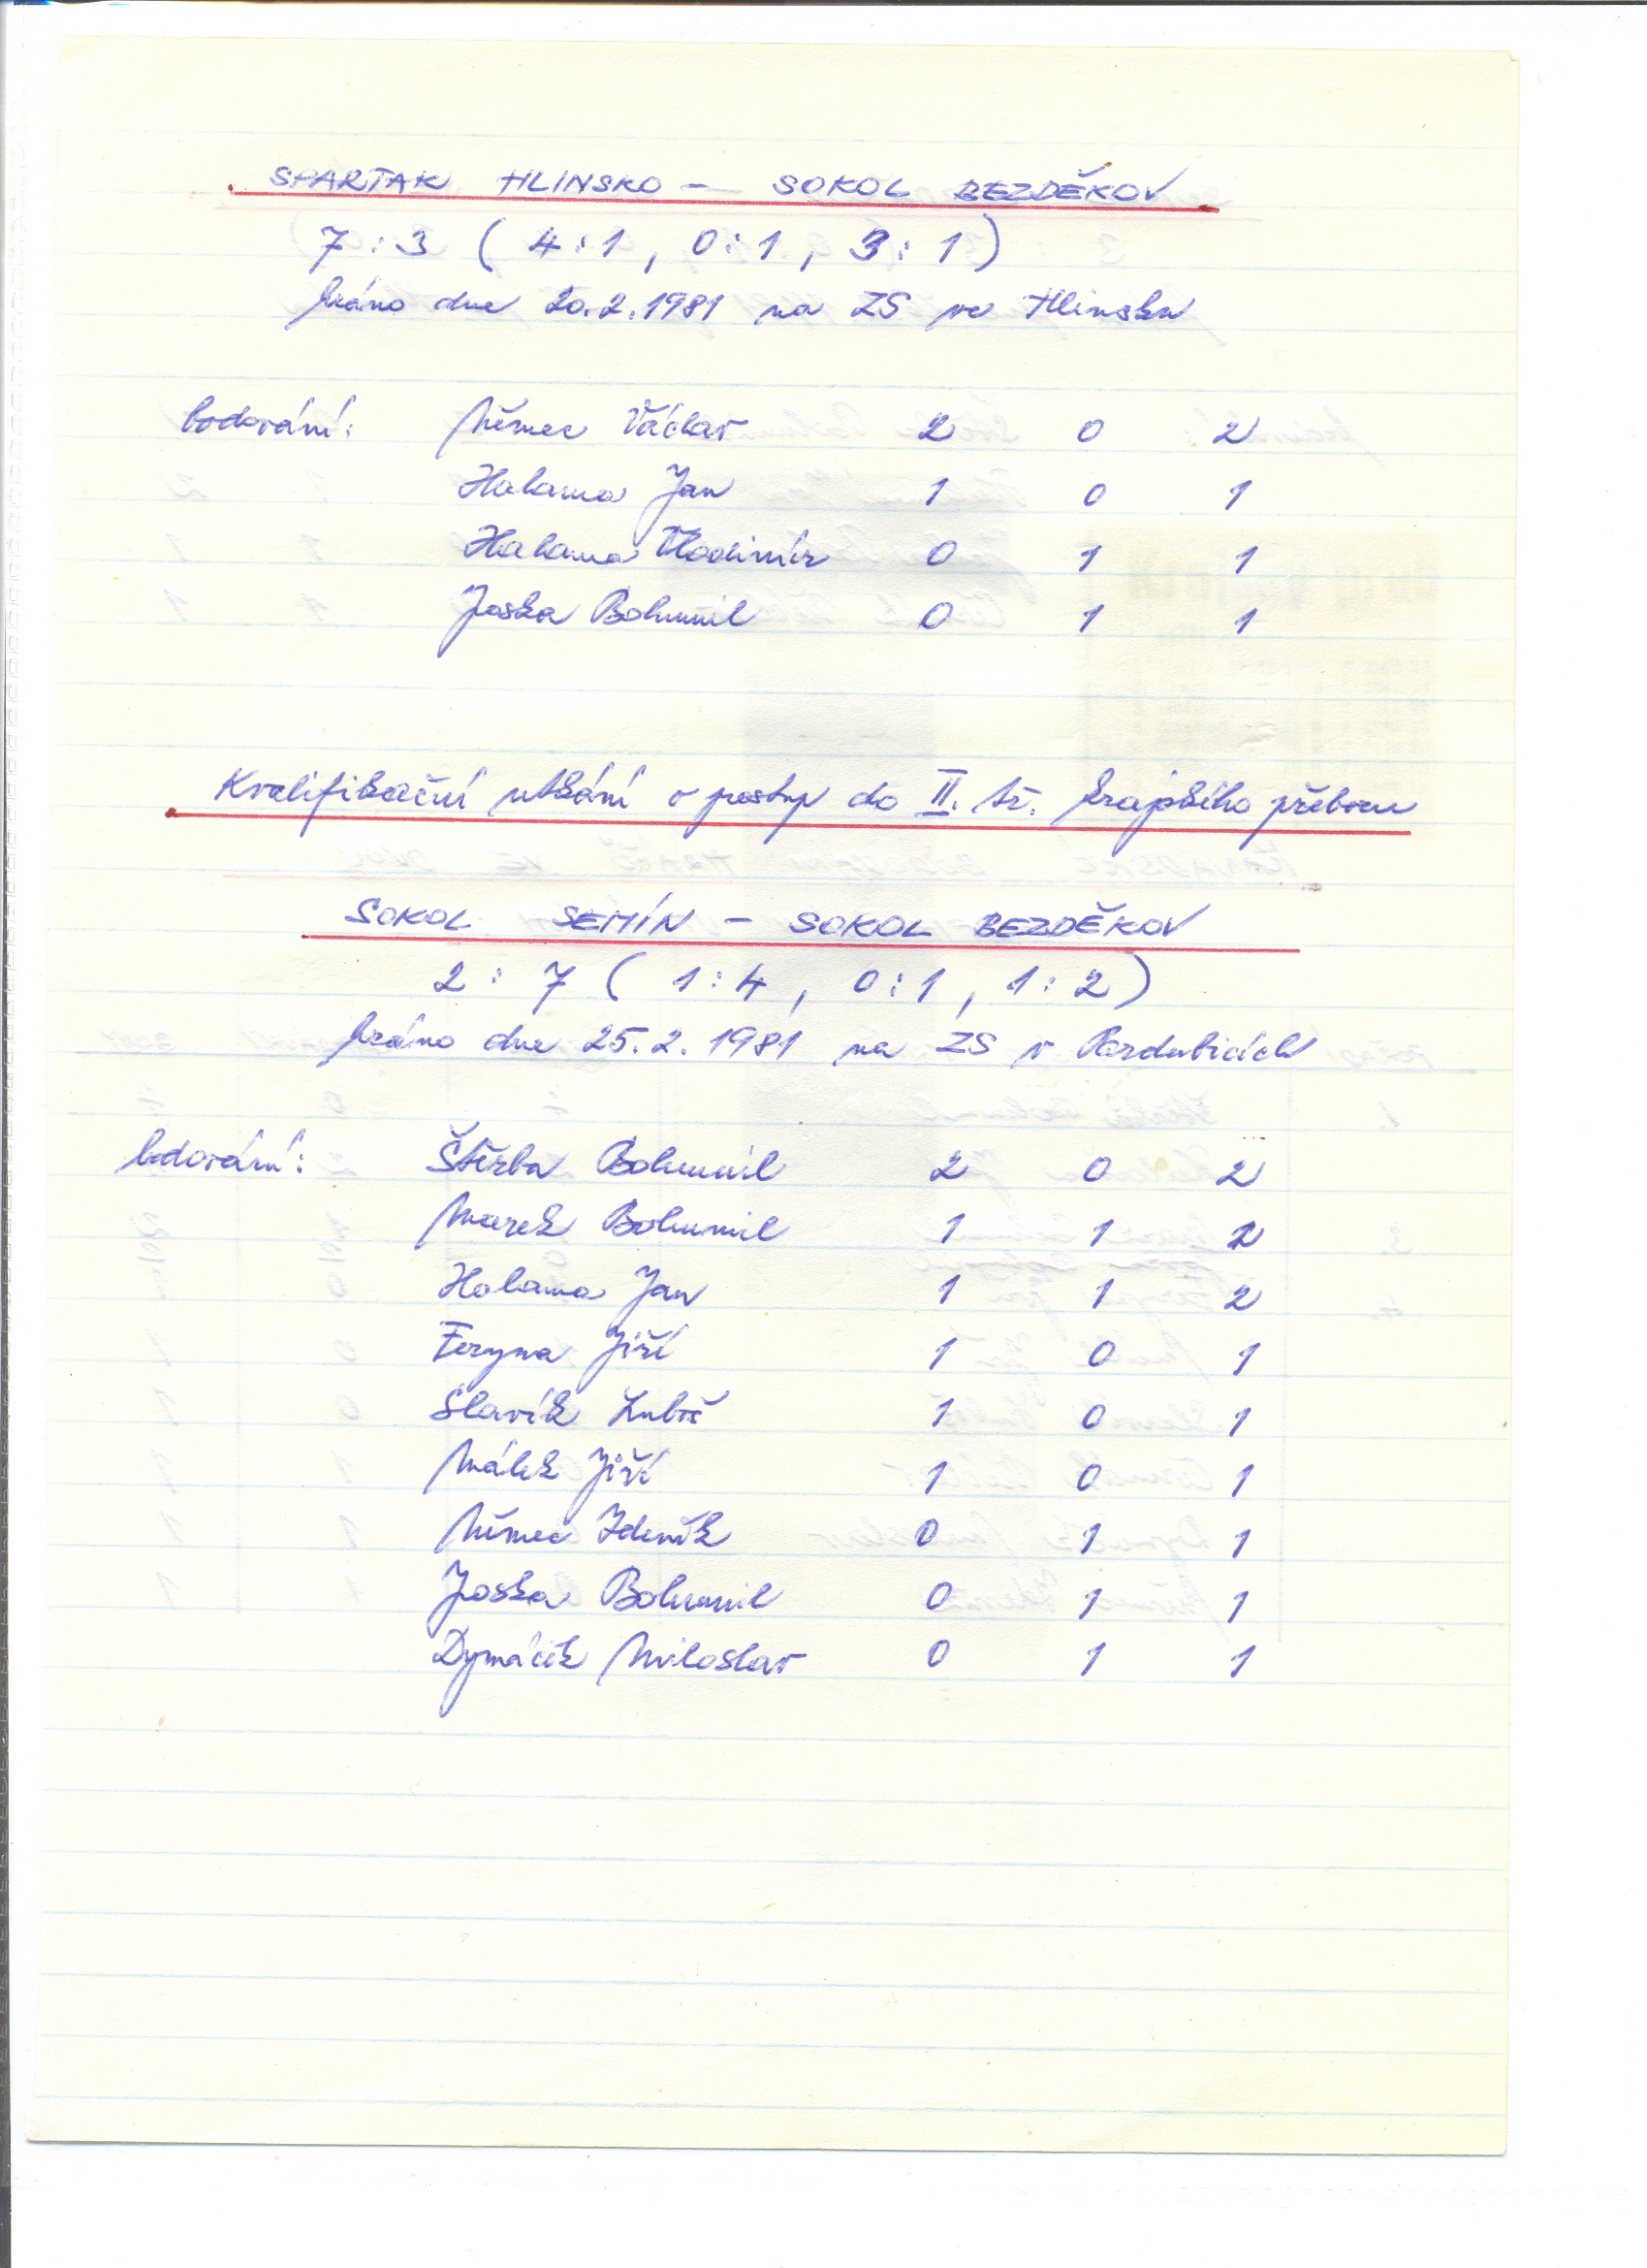 SPARTAK HLINSKO - SOKOL BEZDĚKOV
7 : 3 ( 4 : 1 , 0 : 1 , 3 : 1 )
hráno dne 20.2.1981 na ZS ve Hlinsku
bodování: Němec Václav 2 0 2
Halama Jan 1 0 1
Halama Vladimír 0 1 1
Joska Bohumil 0 1 1
Kvalifikační utkání o postup do II. tř. krajského přeboru
SOKOL SEMÍN - SOKOL BEZDĚKOV
2 : 7 ( 1 : 4 , 0 : 1 , 1 : 2 )
hráno dne 25.2.1981 na ZS v Pardubicích
bodování: Štěrba Bohumil 2 0 2
Marek Bohumil 1 1 2
Halama Jan 1 1 2
Feryna Jiří 1 0 1
Slavík Luboš 1 0 1
Málek Jiří 1 0 1
Němec Zdeněk 0 1 1
Joska Bohumil 0 1 1
Dymáček Miloslav 0 1 1